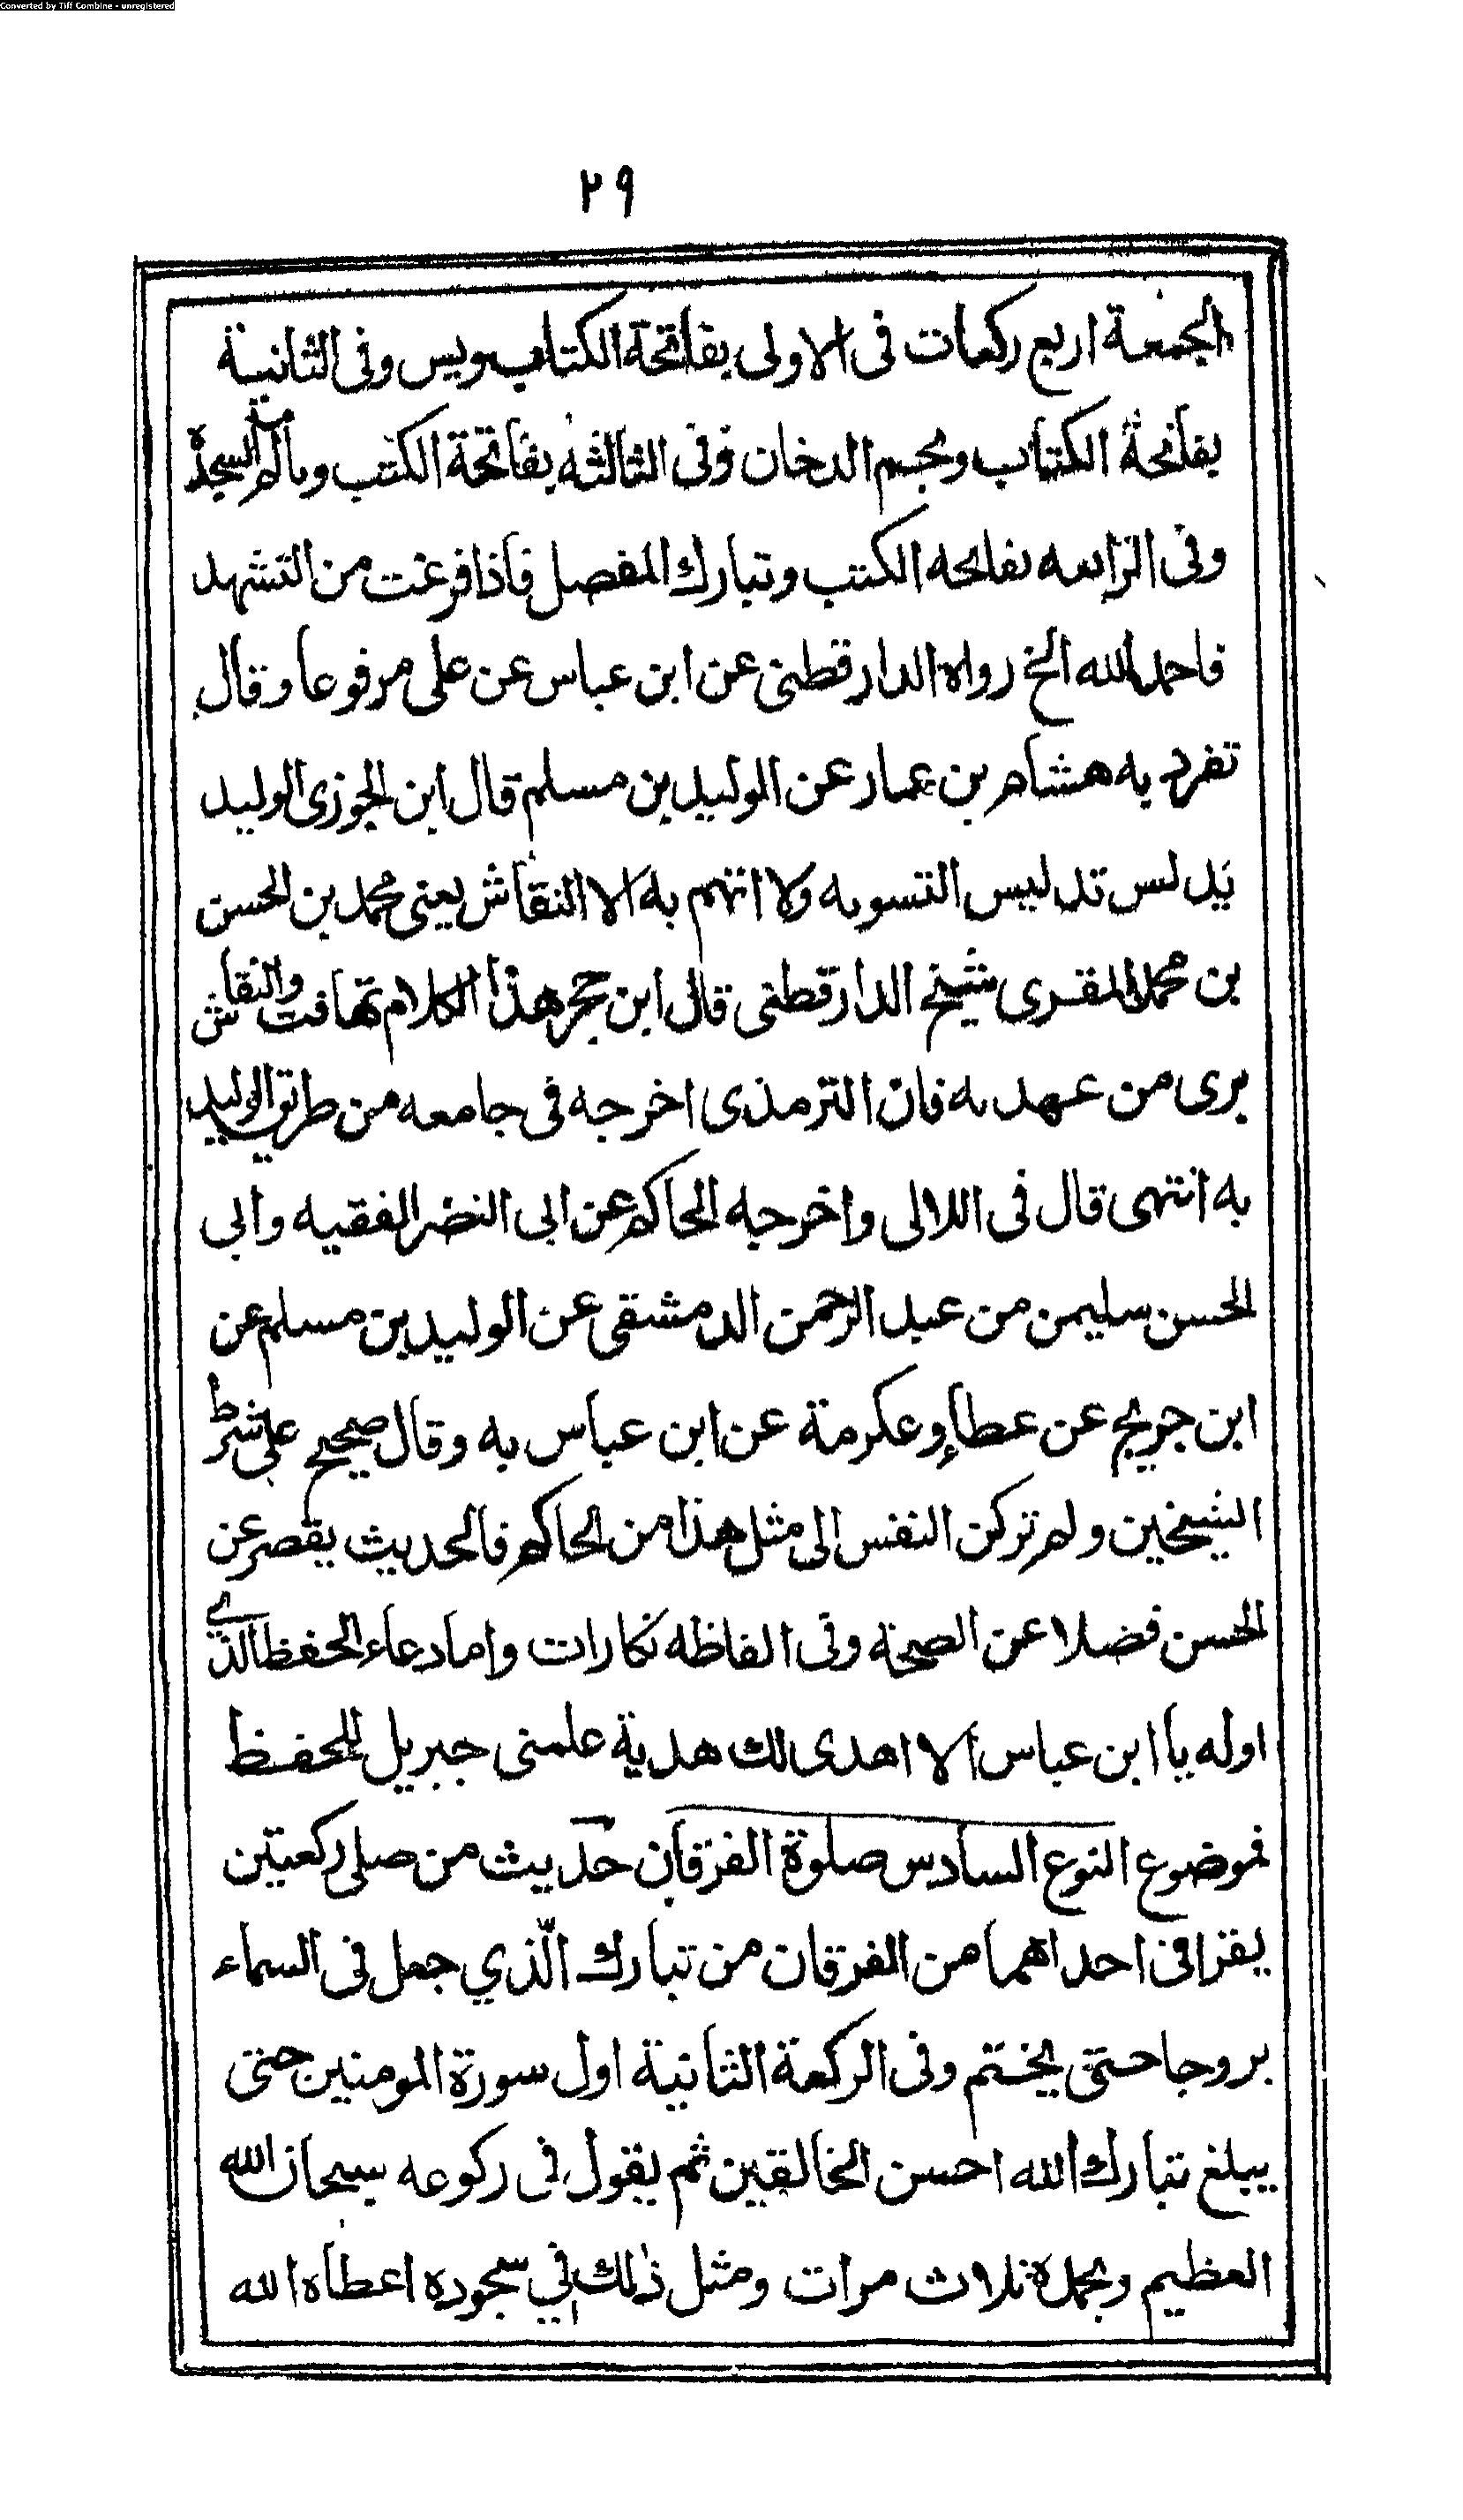 Converted by Tiff Combine - unregistered
٢٩
الجمعة اربع ركعات فى الاولى بفاتحة الكتاب ويس وفى الثانية
بفاتحة الكتاب وبحم الدخان وفى الثالثة بفاتحة الكتب وبالم السجدة
وفى الرابعه بفاتحه الكتب وتبارك المفصل فاذا فرغت من التشهد
فاحمد الله الخ رواه الدارقطنى عن ابن عباس عن على مرفوعا وقال
تفرد به هشام بن عمار عن الوليد بن مسلم قال ابن الجوزى الوليد
يدلس تدليس التسويه ولا اتهم به الا النقاش يعنى محمد بن الحسن
بن محمد المقرى شيخ الدارقطنى قال ابن حجر هذا الكلام تهافت والنقاش
برى من عهدته فان الترمذى اخرجه فى جامعه من طريق الوليد
به انتهى قال فى اللالى واخرجه الحاكم عن ابى النضر الفقيه وابى
الحسن سليمن من عبد الرحمن الدمشقى عن الوليد بن مسلم عن
ابن جريج عن عطاء وعكرمة عن ابن عباس به وقال صحيح على شرط
الشيخين ولم تركن النفس الى مثل هذا من الحاكم فالحديث يقصر عن
الحسن فضلا عن الصحة وفى الفاظه نكارات واما دعاء الحفظ الذي
اوله يا ابن عباس الا اهدى لك هدية علمنى جبريل للحفظ
فموضوع النوع السادس صلوة الفرقان حديث من صلى ركعتين
يقرا فى احداهما من الفرقان من تبارك الّذي جعل فى السماء
بروجا حتى يختم وفى الركعة الثانية اول سورة المومنين حتى
يبلغ تبارك الله احسن الخالقين ثم يقول فى ركوعه سبحان الله
العظيم وبحمده ثلاث مرات ومثل ذلك في سجوده اعطاه الله